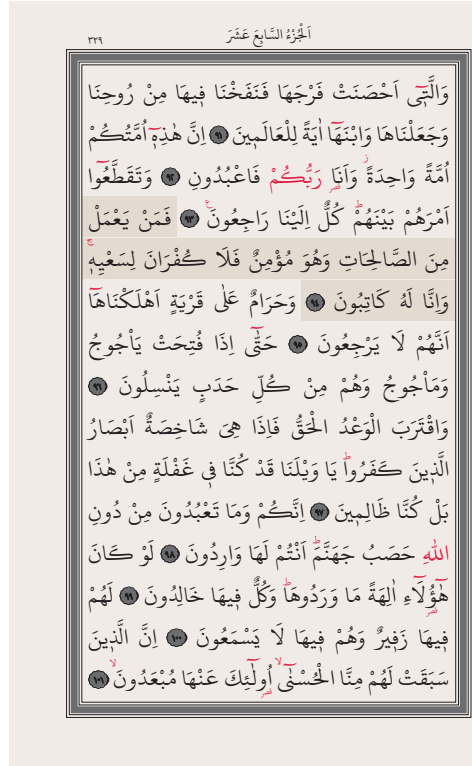 اَلْجُزْءُ السَّابِعَ عَشَرَ
٣٢٩
وَالَّت۪ٓي اَحْصَنَتْ فَرْجَهَا فَنَفَخْنَا ف۪يهَا مِنْ رُوحِنَا
وَجَعَلْنَاهَا وَابْنَهَٓا اٰيَةً لِلْعَالَم۪ينَ ﴿٩١﴾ اِنَّ هٰذِه۪ٓ اُمَّتُكُمْ
اُمَّةً وَاحِدَةًۘ وَاَنَا۬ رَبُّكُمْ فَاعْبُدُونِ ﴿٩٢﴾ وَتَقَطَّعُٓوا
اَمْرَهُمْ بَيْنَهُمْۜ كُلٌّ اِلَيْنَا رَاجِعُونَ۟ ﴿٩٣﴾ فَمَنْ يَعْمَلْ
مِنَ الصَّالِحَاتِ وَهُوَ مُؤْمِنٌ فَلَا كُفْرَانَ لِسَعْيِه۪ۚ
وَاِنَّا لَهُ كَاتِبُونَ ﴿٩٤﴾ وَحَرَامٌ عَلٰى قَرْيَةٍ اَهْلَكْنَاهَٓا
اَنَّهُمْ لَا يَرْجِعُونَ ﴿٩٥﴾ حَتّٰٓى اِذَا فُتِحَتْ يَأْجُوجُ
وَمَأْجُوجُ وَهُمْ مِنْ كُلِّ حَدَبٍ يَنْسِلُونَ ﴿٩٦﴾
وَاقْتَرَبَ الْوَعْدُ الْحَقُّ فَاِذَا هِيَ شَاخِصَةٌ اَبْصَارُ
الَّذ۪ينَ كَفَرُواۜ يَا وَيْلَنَا قَدْ كُنَّا ف۪ي غَفْلَةٍ مِنْ هٰذَا
بَلْ كُنَّا ظَالِم۪ينَ ﴿٩٧﴾ اِنَّكُمْ وَمَا تَعْبُدُونَ مِنْ دُونِ
اللّٰهِ حَصَبُ جَهَنَّمَۜ اَنْتُمْ لَهَا وَارِدُونَ ﴿٩٨﴾ لَوْ كَانَ
هٰٓؤُ۬لَٓاءِ اٰلِهَةً مَا وَرَدُوهَاۜ وَكُلٌّ ف۪يهَا خَالِدُونَ ﴿٩٩﴾ لَهُمْ
ف۪يهَا زَف۪يرٌ وَهُمْ ف۪يهَا لَا يَسْمَعُونَ ﴿١٠٠﴾ اِنَّ الَّذ۪ينَ
سَبَقَتْ لَهُمْ مِنَّا الْحُسْنٰٓىۙ اُو۬لٰٓئِكَ عَنْهَا مُبْعَدُونَۙ ﴿١٠١﴾